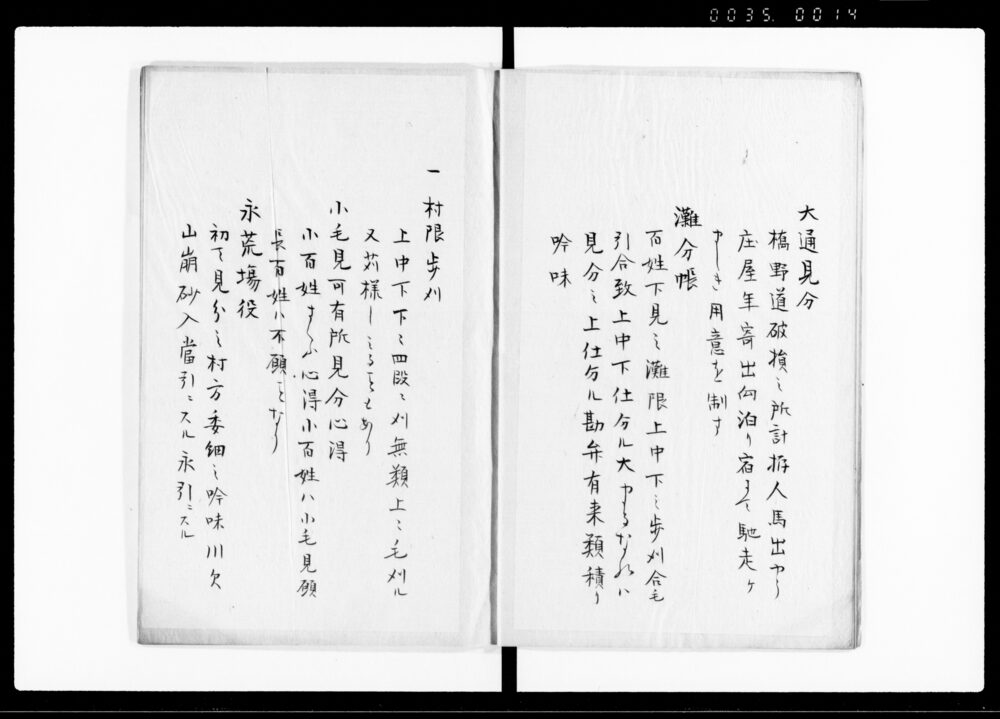 0035. 0014
大通見分
橋野道破損之所計拵人馬出
庄屋年寄出向泊り宿 馳走ケ
用意を制す
灘分帳
百姓下見之灘限上中下之歩刈合毛
引合致上中下仕分ル大
見分之上仕分ル勘弁有来類積り
吟味
一村限歩刈
上中下下ニ四段ニ刈無類上ニ毛刈ル
又苅様 もあり
小毛見可有所見分心得
小百姓 心得小百姓ハ小毛見願
長百姓ハ不願
永荒場役
初て見分之村方委細之吟味川欠
山崩砂入當引ニスル永引ニスル